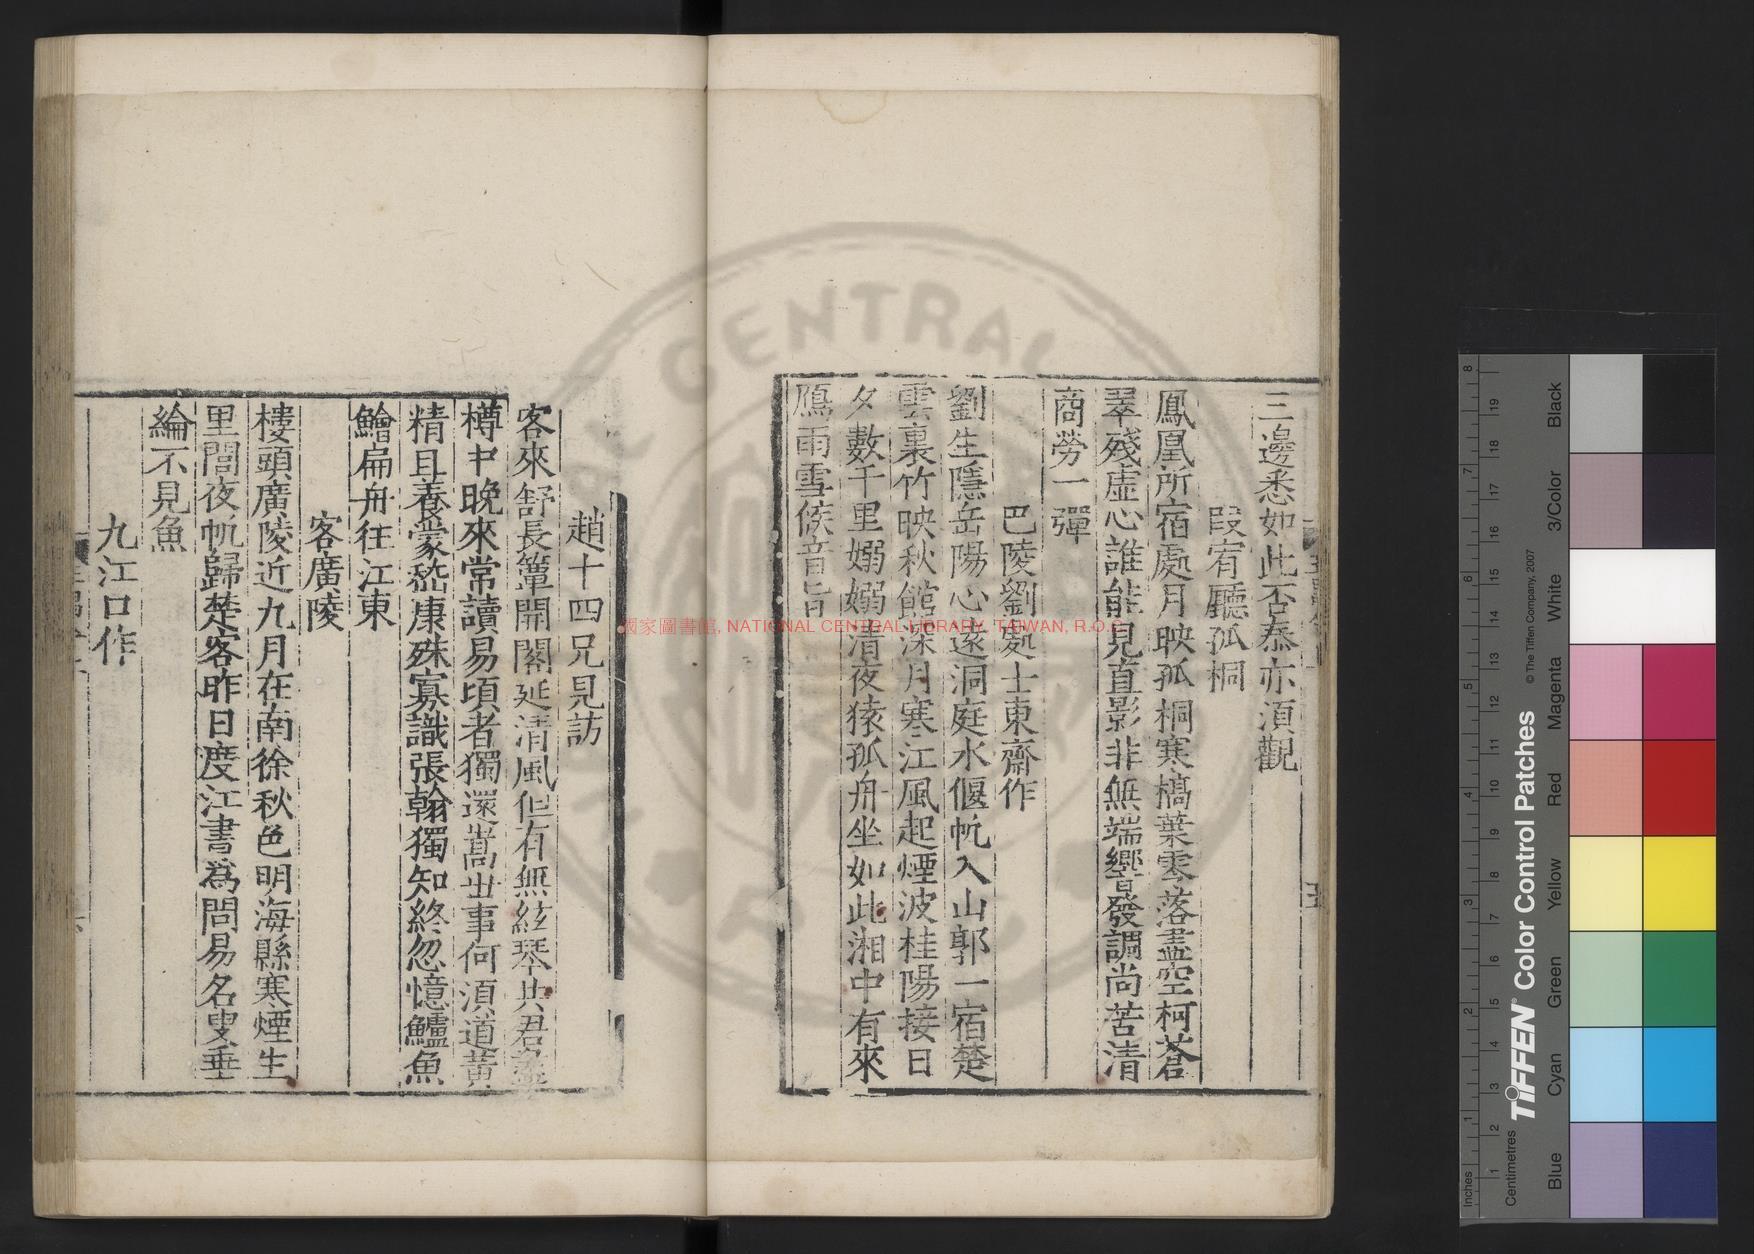 三邊悉如此否泰亦須觀
段宥廳孤桐
鳳凰所宿處月映孤桐寒槁葉零落盡空柯蒼
翠殘虛心誰能見直影非無端響發調尚苦清
商勞一彈
巴陵劉處士東齋作
劉生隱岳陽心遠洞庭水偃帆入山郭一宿楚
雲裏竹映秋館深月寒江風起煙波桂陽接日
夕數千里嫋嫋清夜猿孤舟坐如此湘中有來
鴈雨雪候音旨
趙十四兄見訪
客來舒長簟開閣延清風但有無絃琴共君盡
樽中晚來常讀易頃者獨還嵩世事何須道黃
精且養蒙嵇康殊寡識張翰獨知終忽憶鱸魚
鱠扁舟往江東
客廣陵
樓頭廣陵近九月在南徐秋色明海縣寒煙生
里閭夜帆歸楚客昨日度江書為問易名叟垂
綸不見魚
九江口作
國家圖書館, NATIONAL CENTRAL LIBRARY, TAIWAN, R.O.C
CENTRAL
Inches
Centimetres
TIFFEN® Color Control Patches
© The Tiffen Company, 2007
Blue
Cyan
Green
Yellow
Red
Magenta
White
3/Color
Black